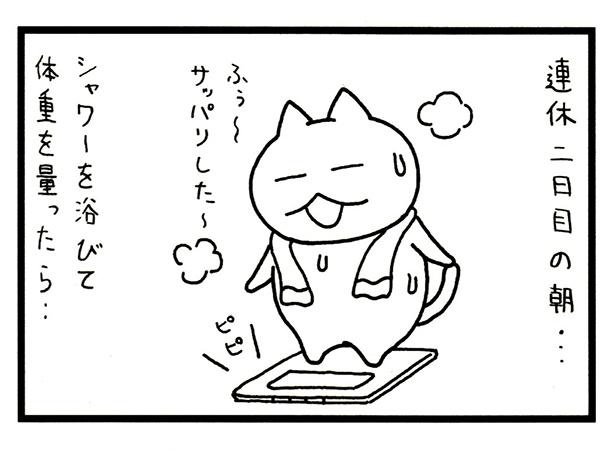 連休二日目の朝・・・
ふぅ〜
サッパリした〜
ピピ
シャワーを浴びて
体重を量ったら・・・